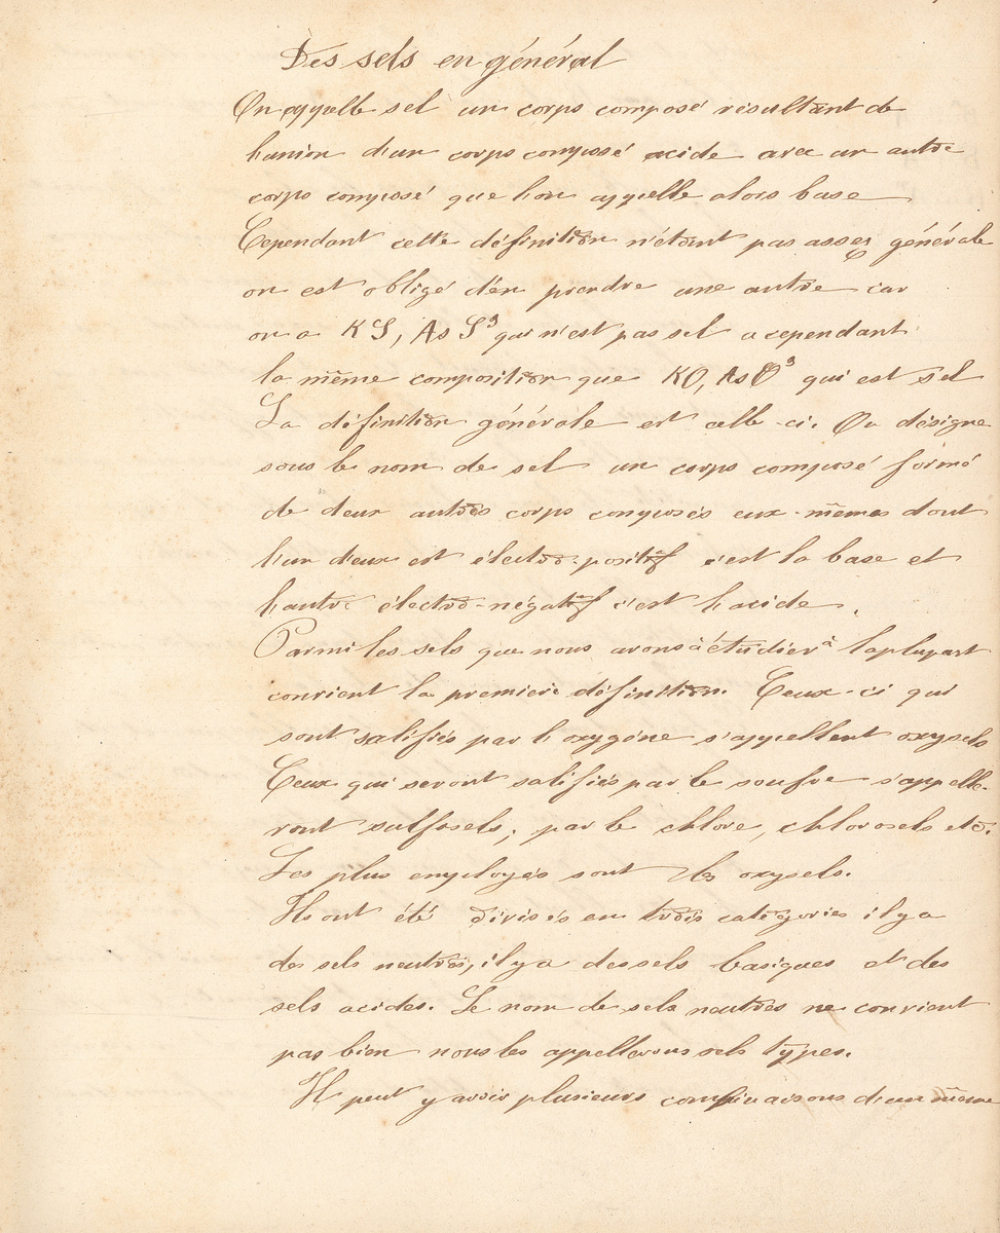 Des sels en général
On appelle sel un corps composé résultant de
l'union d'un corps composé acide avec un autre
corps composé que l'on appelle alors base
Cependant cette définition n'étant pas assez générale
on est obligé d'en prendre une autre car
on a KS, AsS³ qui n'est pas sel a cependant
la même composition que KO, AsO³ qui est sel
La définition générale est celle-ci. On désigne
sous le nom de sel un corps composé formé
de deux autres corps composés eux-mêmes dont
l'un d'eux est électro-positif c'est la base et
l'autre électro-négatif c'est l'acide.
Parmi les sels que nous avons à étudier à la plupart
convient la première définition. Ceux-ci qui
sont salifiés par l'oxygène s'appellent oxysels
Ceux qui seront salifiés par le soufre s'appelle-
ront sulfosels, par le chlore, chlorosels etc.
Les plus employés sont les oxysels.
Ils ont été divisés en trois catégories il y a
des sels neutres, il y a des sels basiques et des
sels acides. Le nom de sels neutres ne convient
pas bien nous les appellerons sels types.
Il peut y avoir plusieurs combinaisons d'un même